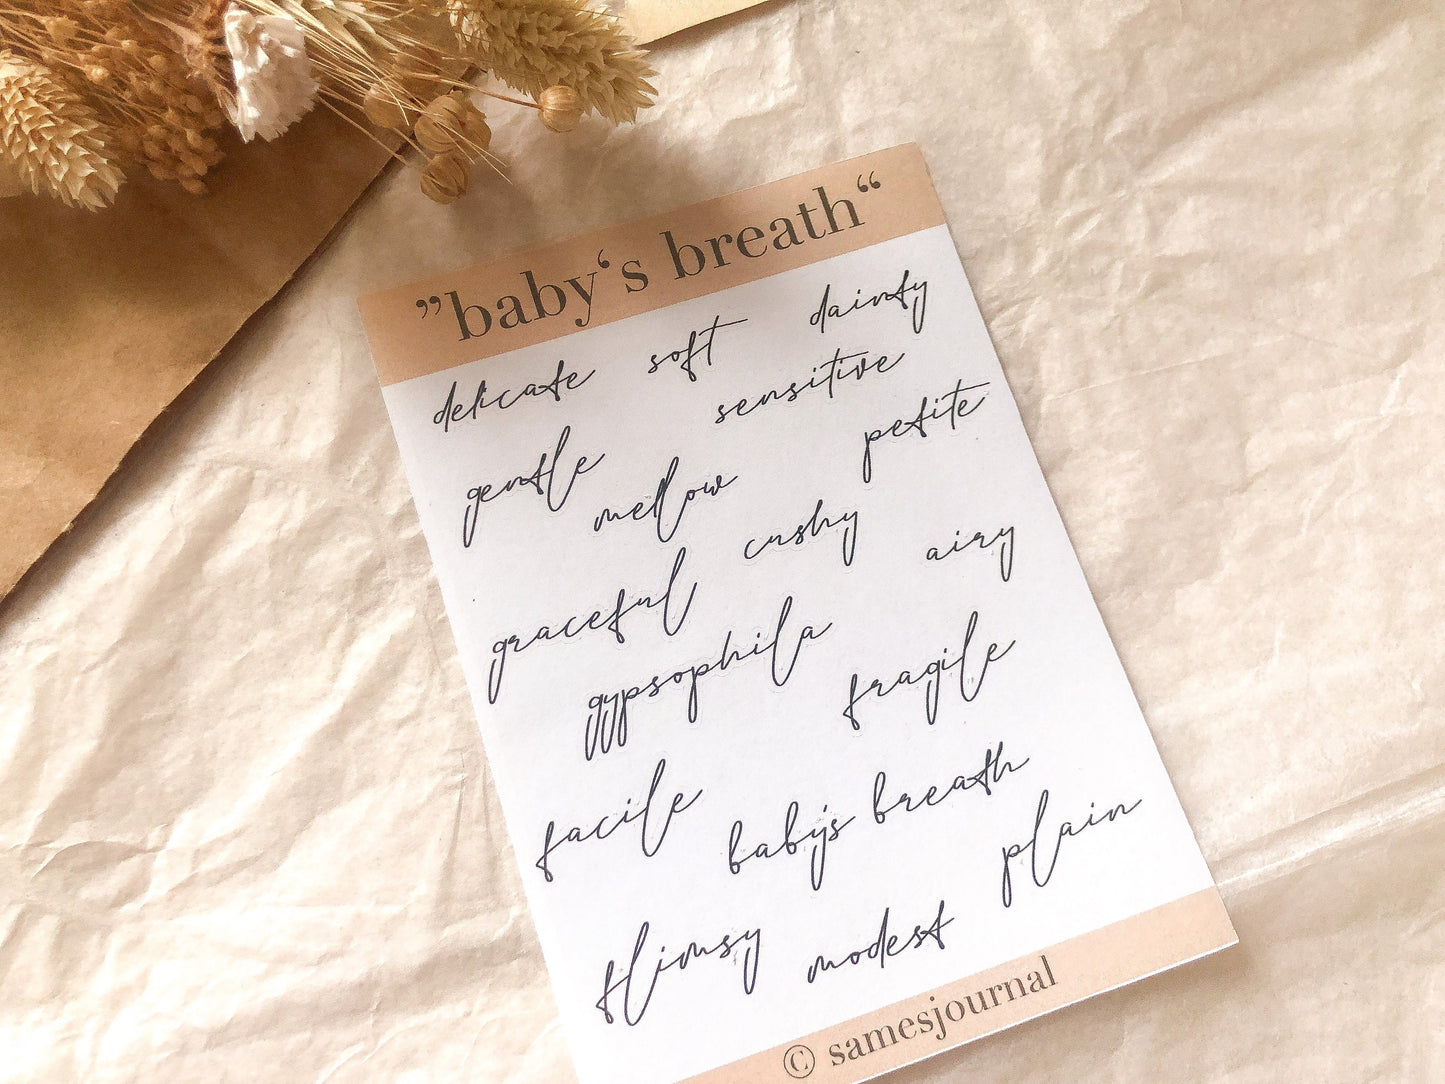 ”baby‘s breath“
delicate soft dainty
gentle sensitive
mellow petite
graceful cushy airy
gypsophila fragile
facile baby's breath plain
flimsy modest
© samesjournal